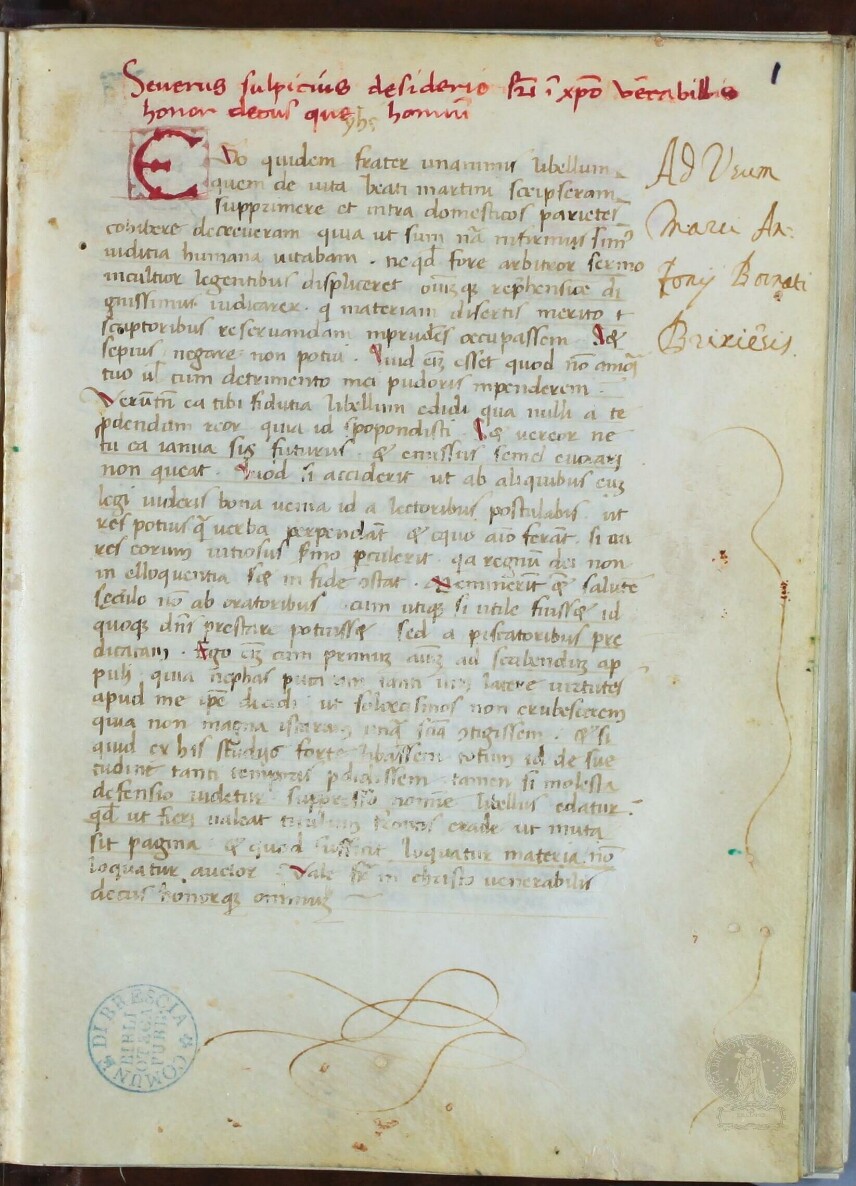 1
Seuerus sulpicius desiderio fr̄i ī xp̄o vēerabillis
honor decus que hominū
yhs
EGo quidem frater unanimis libellum
quem de uita beati martini scripseram
supprimere et intra domesticos parietes
cohibere decreueram quia ut sum nā infirmus simꝰ
iuditia humana uitabam . ne qd fore arbitror sermo
incultior legentibus displiceret oīuꝫqꝫ rephensioē di
gnissimus iudicarer . q materiam disertis merito ⁊
scriptoribus reseruandam inprudēs occupassem &
sepius negare non potui . Quid eī esset quod nō amoꝛi
tuo ul̄ cum detrimento mei pudoris inpenderem .
Verūtn̄ ea tibi fidutia libellum edidi qua nulli a te
pdendum reor quia id spopondisti . & uereor ne
tu ea ianua sis futurus & emissus semel euocari
non queat . Quod si acciderit ut ab aliquibus euꝫ
legi uideris bona uenia id a lectoribus postulabis ut
res potius q̄ verba perpendāt & equo aīo ferāt si au
res eorum uitiosus fmo pculerit qa regnū dei non
in elloquentia sꝫ in fide ↄstat . Meminerīt & salutē
seculo nō ab oratoribus cum utiqꝫ si utile fuisset id
quoqꝫ dn̄s prestare potuisset sed a piscatoribus pre
dicatam . Ego eī cum primuꝫ aīuꝫ ad scribenduꝫ ap
puli quia nephas putarem tanti uiri latere uirtutes
apud me ip̄e decidi ut solocismos non erubescerem
quia non magna istarum unq̄ rerū scīa ↄtigissem . & si
quid ex his studijs forte libassem totum id de sue
tudine tanti temporis pdidissem tamen si molesta
defensio uidetur suppresso nomīe libellus edatur .
qd ut fieri ualeat titulum frontis erade ut muta
sit pagina & quod sufficit loquatur materia nō
loquatur auctor . Vale fr̄ in christo uenerabilis
decus bonorqꝫ omniuꝫ
Ad Vsum
Marci An:
tonij Bornati
Brixiēsis.
COMUNE DI BRESCIA
BIBLI
OTECA